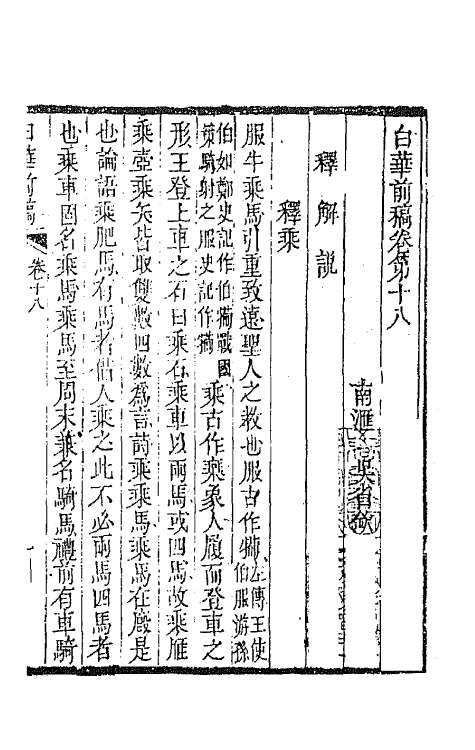 白華前稿卷第十八
南滙吳省欽
釋解說
釋乘
服牛乘馬引重致遠聖人之教也服古作犕左傳王使伯服游孫
伯如鄭史記作伯犕戰國策騎射之服史記作犕乘古作椉象人履而登車之
形王登上車之石曰乘石乘車以兩馬或四馬故乘雁
乘壺乘矢皆取雙數四數爲言詩乘乘馬乘馬在廄是
也論語乘肥馬有馬者借人乘之此不必兩馬四馬者
也乘車固名乘馬乘馬至周末兼名騎馬禮前有車騎
白華前稿
卷十八
一